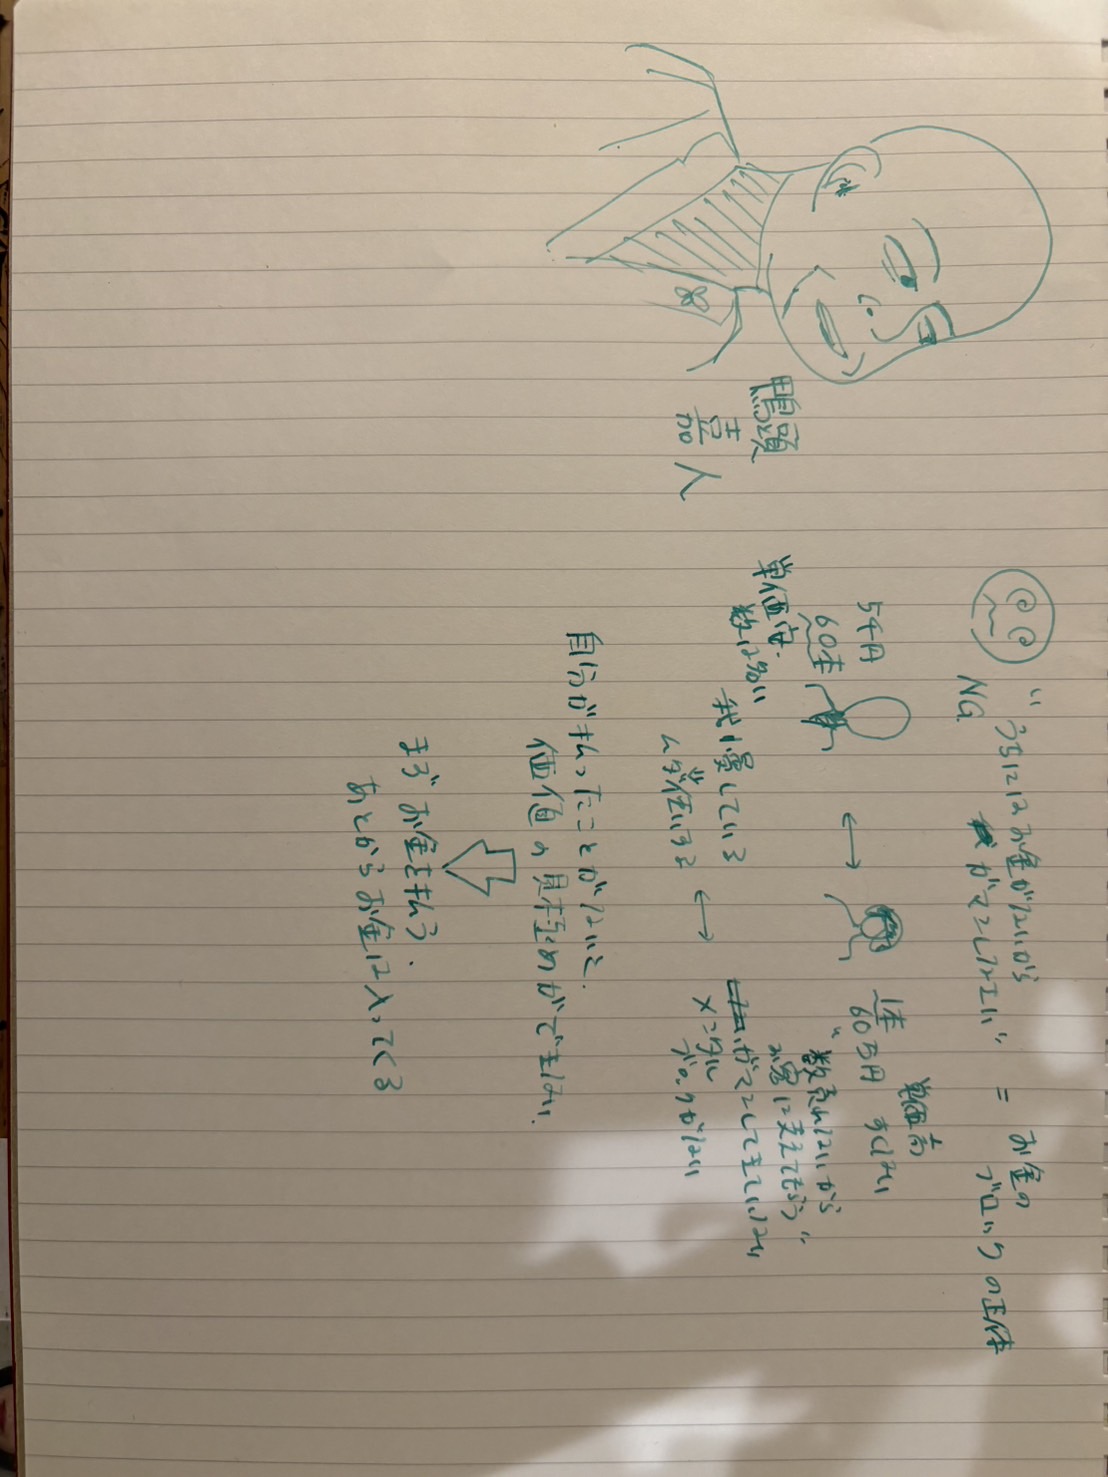 鴨頭
嘉
人
"うちにはお金がないから
がマンしなさい" = お金の
NG
ブロックの正体
5千円
60本
単価安
数は多い
↔
1本
60万円
単価高
すくない
"数売れないから
お客に支えてもらう"
我慢している
↓
ムダ使いする
↔
がマンしてきていない
メンタル
ブロックがない
自分が払ったことがないと、
価値の見極めができない、
まずお金を払う、
あとからお金は入ってくる